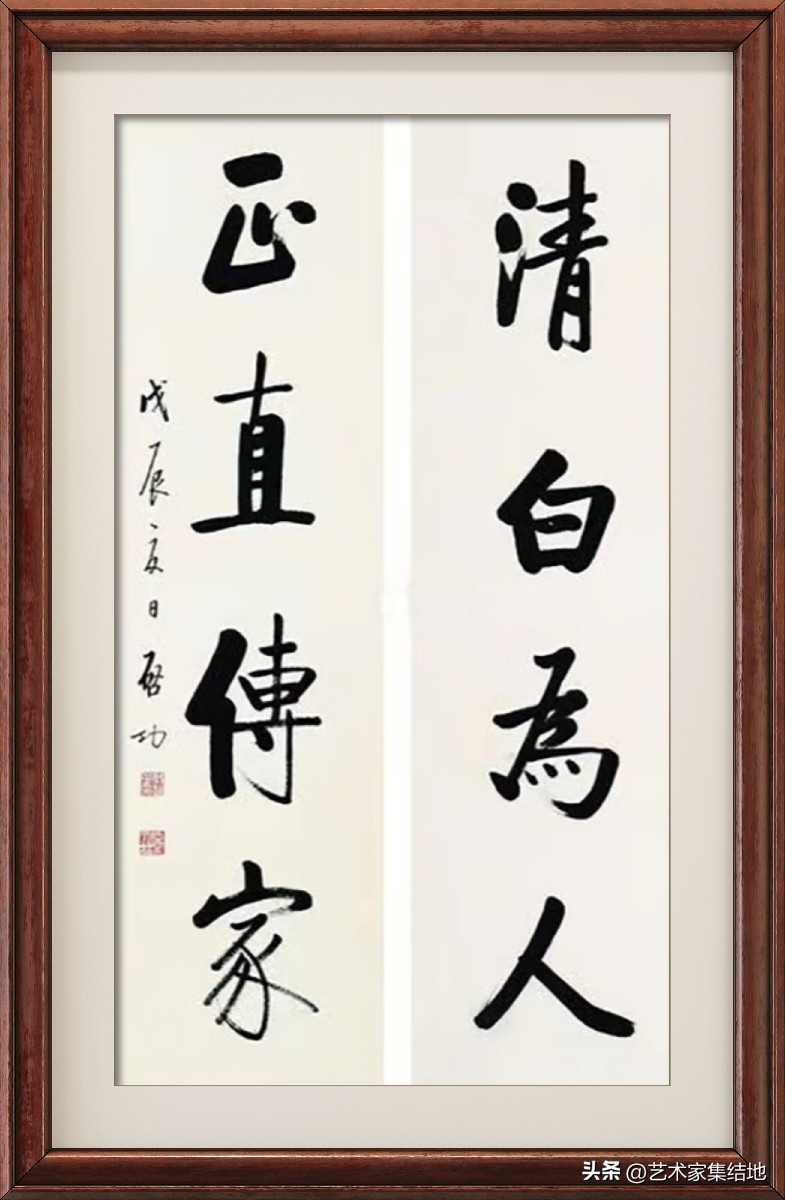 清白為人
正直傳家
戊辰夏日啓功
头条 @艺术家集结地